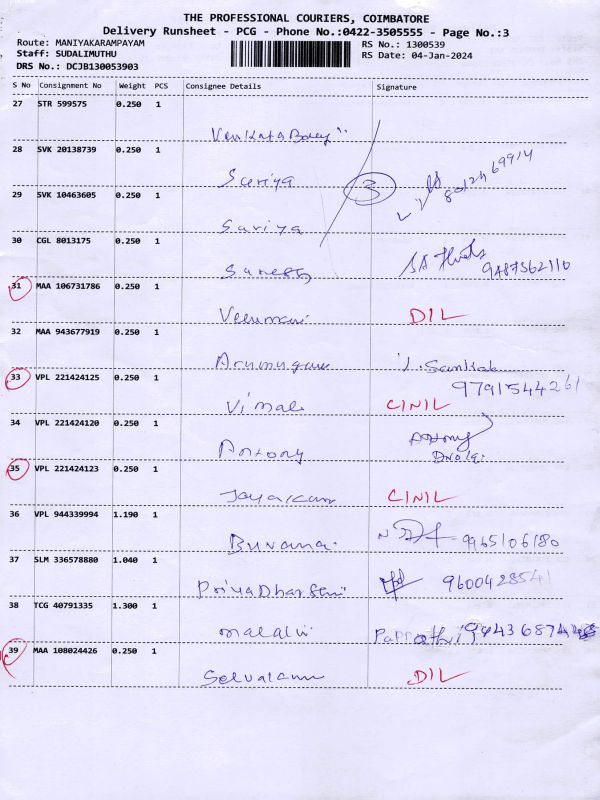 THE PROFESSIONAL COURIERS, COIMBATORE
Delivery Runsheet - PCG - Phone No.:0422-3505555 - Page No.:3
Route: MANIYAKARAMPAYAM RS No.: 1300539
Staff: SUDALIMUTHU RS Date: 04-Jan-2024
DRS No.: DCJB130053903
S No Consignment No Weight PCS Consignee Details Signature
27 STR 599575 0.250 1
28 SVK 20138739 0.250 1
Suriya 3
29 SVK 10463605 0.250 1
Suriya
30 CGL 8013175 0.250 1
Suresh 9487562110
31 MAA 106731786 0.250 1
Veerumani DIL
32 MAA 943677919 0.250 1
Arumugam
33 VPL 221424125 0.250 1 9791544261
Vimal CINIL
34 VPL 221424120 0.250 1
Antony Antony
35 VPL 221424123 0.250 1
Jayakkum CINIL
36 VPL 944339994 1.190 1
Buvana. 9965106180
37 SLM 336578880 1.040 1
PriyaDharshni 9600428541
38 TCG 40791335 1.300 1
malalvi Pappathi
39 MAA 108024426 0.250 1
DIL